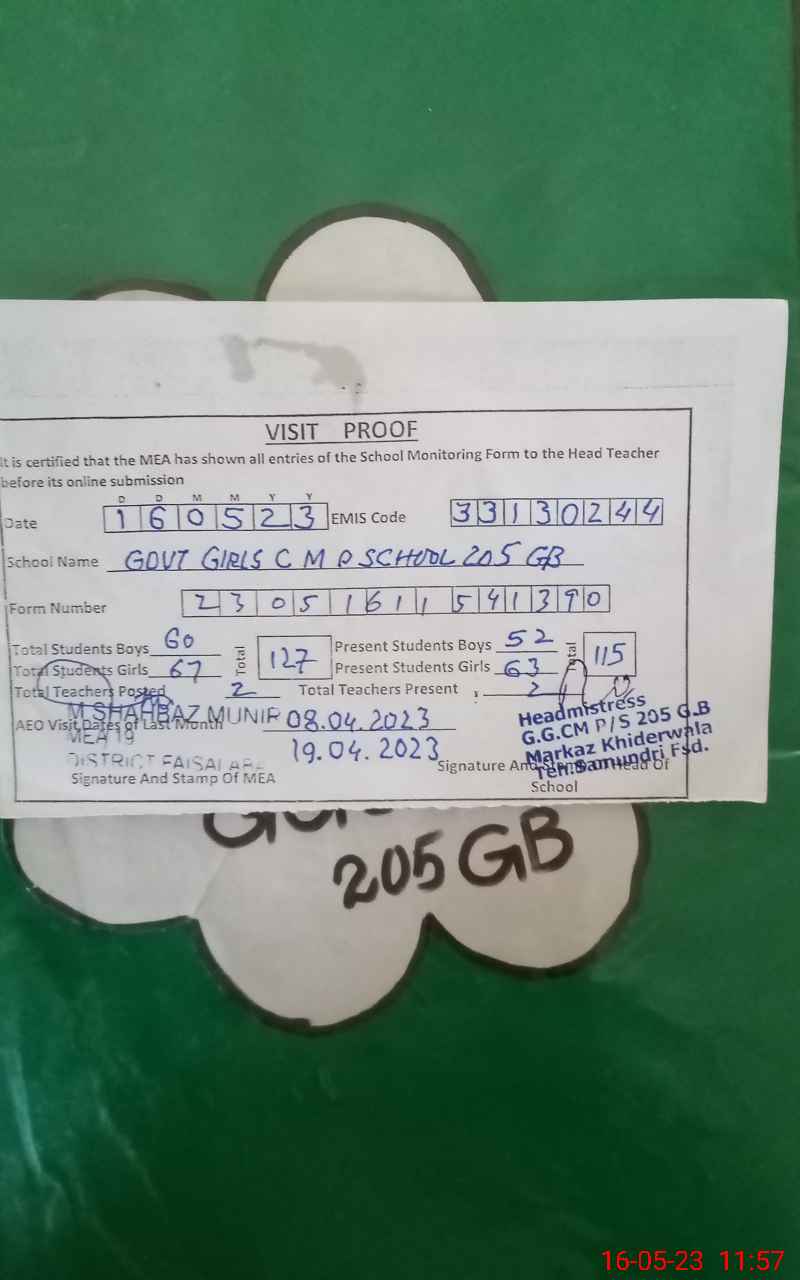 VISIT PROOF
It is certified that the MEA has shown all entries of the School Monitoring Form to the Head Teacher
before its online submission
D D M M Y Y
Date 160523 EMIS Code 33130244
School Name GOVT GIRLS C M P SCHOOL 205 GB
Form Number 23051611541390
Total Students Boys 60 Total 127 Present Students Boys 52 Total 115
Total Students Girls 67 Present Students Girls 63
Total Teachers Posted 2 Total Teachers Present 2
M SHAHBAZ MUNIR
AEO Visit Dates of Last Month 08.04.2023
MEA 19
19.04.2023
DISTRICT
Signature And Stamp Of MEA
Headmistress
G.G.CM P/S 205 G.B
Markaz Khiderwala
Teh.Samundri Fsd.
Signature And Of
School
205 GB
16-05-23 11:57